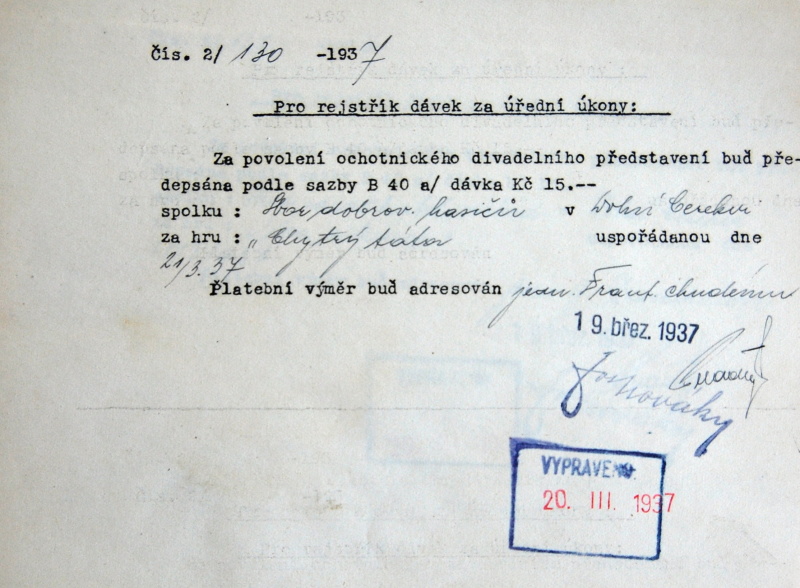 čís. 2/ 130 -1937
Pro rejstřík dávek za úřední úkony:
Za povolení ochotnického divadelního představení buď pře-
depsána podle sazby B 40 a/ dávka Kč 15.--
spolku : Sbor dobrov. hasičů v Dolní Cerekvi
za hru : „Chytrý táta uspořádanou dne
21/3.37
Platební výměr buď adresován jedn. Frant. Chudému
19. břez. 1937
VYPRAVENO
20. III. 1937